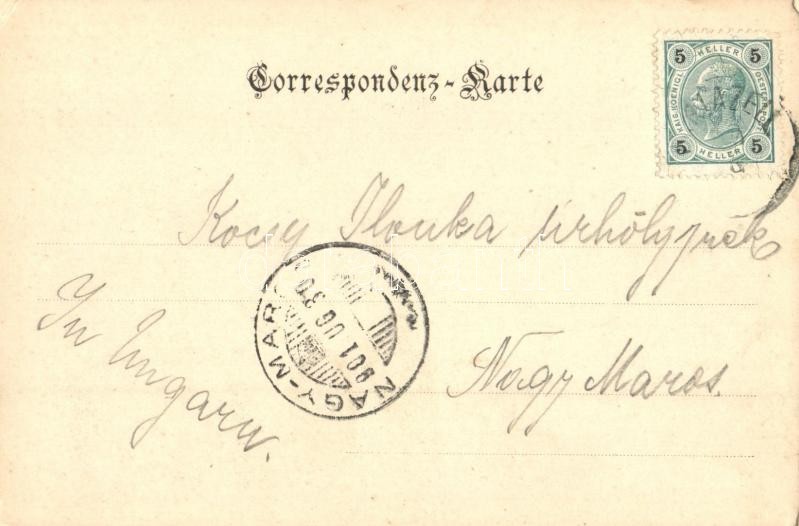 Correspondenz-Karte
5 HELLER 5
KAIS. KOENIGL. OESTERR. POST
5 HELLER 5
Kocsy Ilonka úrhölgynek
In Ungarn.
Nagy Maros.
NAGY-MAROS
901 UG 30